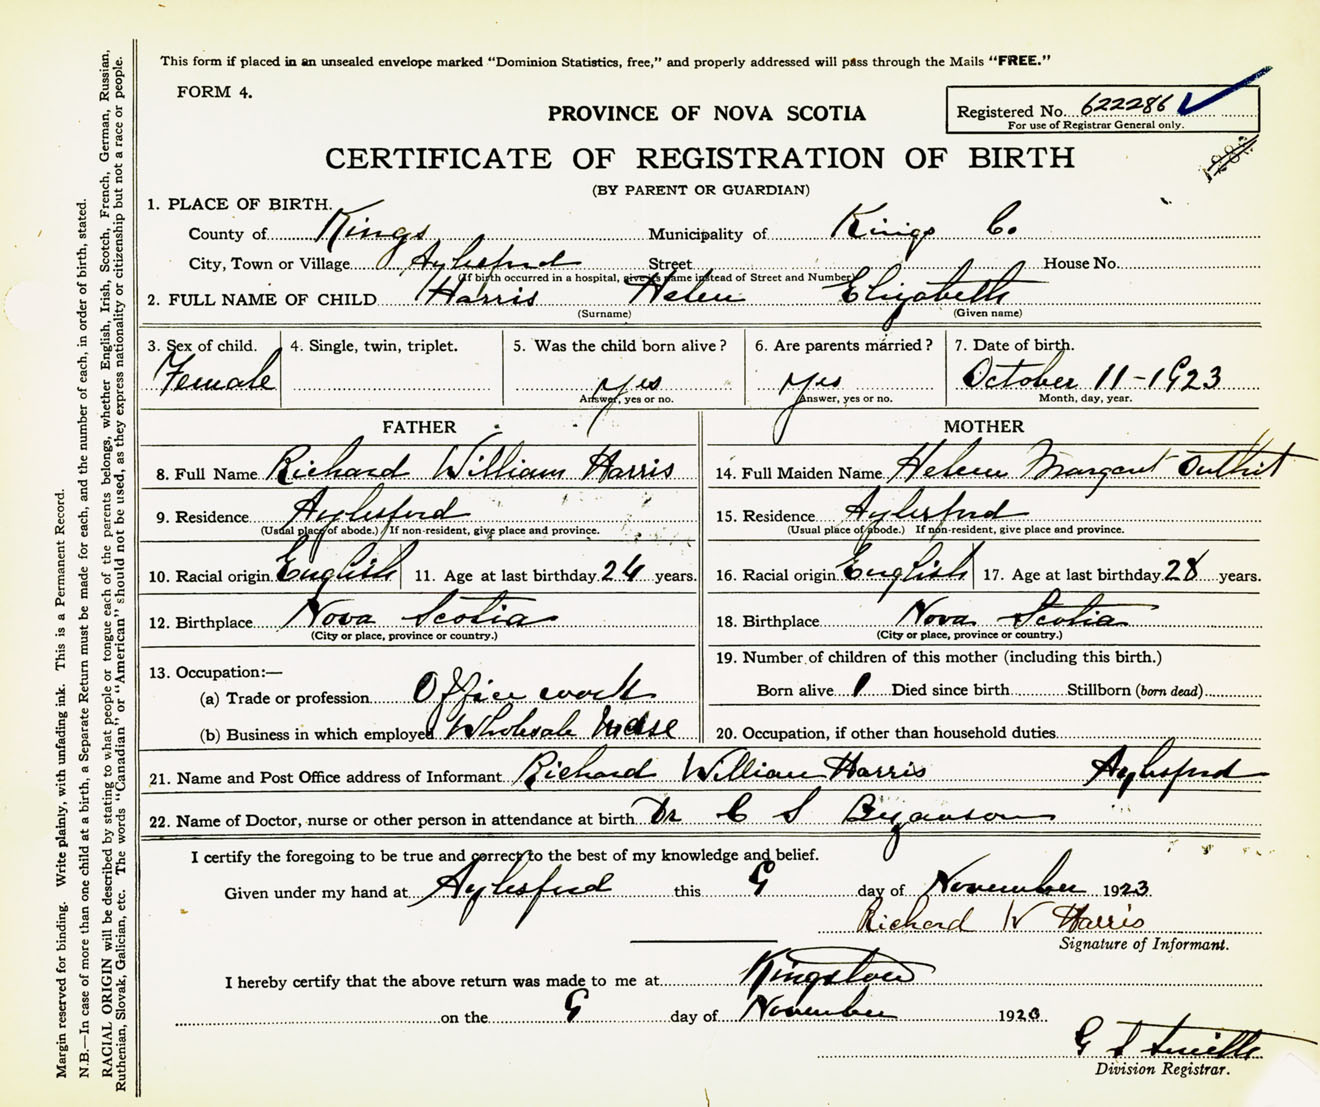 This form if placed in an unsealed envelope marked "Dominion Statistics, free," and properly addressed will pass through the Mails "FREE."
FORM 4.
PROVINCE OF NOVA SCOTIA
Registered No. 622286
For use of Registrar General only.
CERTIFICATE OF REGISTRATION OF BIRTH
(BY PARENT OR GUARDIAN)
1. PLACE OF BIRTH.
County of Kings Municipality of Kings Co.
City, Town or Village Aylesford Street House No.
(If birth occurred in a hospital, give its name instead of Street and Number)
2. FULL NAME OF CHILD Harris Helen Elizabeth
(Surname) (Given name)
3. Sex of child. 4. Single, twin, triplet. 5. Was the child born alive? 6. Are parents married? 7. Date of birth.
Female yes yes October 11-1923
Answer, yes or no. Answer, yes or no. Month, day, year.
FATHER MOTHER
8. Full Name Richard William Harris 14. Full Maiden Name Helen Margaret Outhit
9. Residence Aylesford 15. Residence Aylesford
(Usual place of abode.) If non-resident, give place and province. (Usual place of abode.) If non-resident, give place and province.
10. Racial origin English 11. Age at last birthday 24 years. 16. Racial origin English 17. Age at last birthday 28 years.
12. Birthplace Nova Scotia 18. Birthplace Nova Scotia
(City or place, province or country.) (City or place, province or country.)
13. Occupation:— 19. Number of children of this mother (including this birth.)
(a) Trade or profession Office work Born alive 1 Died since birth Stillborn (born dead)
(b) Business in which employed Wholesale 20. Occupation, if other than household duties
21. Name and Post Office address of Informant Richard William Harris Aylesford
22. Name of Doctor, nurse or other person in attendance at birth Dr C S
I certify the foregoing to be true and correct to the best of my knowledge and belief.
Given under my hand at Aylesford this 9 day of November 1923
Richard W Harris
Signature of Informant.
I hereby certify that the above return was made to me at Kingston
on the 9 day of November 1923
G Smith
Division Registrar.
Margin reserved for binding. Write plainly, with unfading ink. This is a Permanent Record.
N.B.—In case of more than one child at a birth, a Separate Return must be made for each, and the number of each, in order of birth, stated.
RACIAL ORIGIN will be described by stating to what people or tongue each of the parents belongs, whether English, Irish, Scotch, French, German, Russian,
Ruthenian, Slovak, Galician, etc. The words "Canadian" or "American" should not be used, as they express nationality or citizenship but not a race or people.